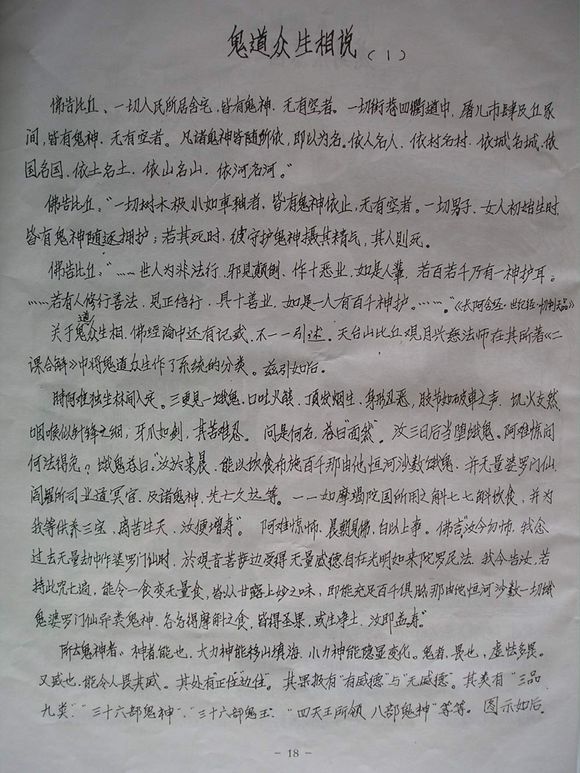 鬼道众生相说（1）
佛告比丘、一切人民所居舍宅，皆有鬼神．无有空者。一切街巷四衢道中，屠儿市肆及丘冢
间，皆有鬼神．无有空者。凡诸鬼神皆随所依，即以为名。依人名人．依村名村．依城名城．依
国名国．依土名土．依山名山．依河名河。”
佛告比丘：“一切树木极小如车轴者，皆有鬼神依止，无有空者。一切男子．女人初始生时，
皆有鬼神随逐拥护；若其死时，彼守护鬼神摄其精气，其人则死。
佛告比丘：“……世人为非法行．邪见颠倒．作十恶业，如是人辈，若百若千乃有一神护耳。
……若有人修行善法，见正信行．具十善业，如是一人有百千神护……。”《长阿含经·世纪经·忉利天品》
关于鬼道众生相．佛经论中还有记载．不一一引述．天台山比丘观月兴慈法师在其所著《二
课合解》中将鬼道众生作了系统的分类。兹引如后。
时阿难独坐林间入定。三更见一饿鬼．口吐火燄．顶发烟生．身形丑恶，肢节如破车之声．饥火交然．
咽喉似针锋之细，牙爪如剑，其苦难忍。问是何名，答曰“面然”。汝三日后当堕饿鬼。阿难惊问
何法得免？饿鬼答曰：“汝于来晨．能以饮食布施百千那由他恒河沙数饿鬼．并无量婆罗门仙．
阎罗所司业道冥官．及诸鬼神．先亡久远等。一一如摩竭陀国所用之斛七七斛饮食．并为
我等供养三宝，离苦生天．汝便增寿”。阿难惊怖．晨朝见佛，白以上事。佛言“汝今勿怖．我念
过去无量劫中作婆罗门仙时．於观音菩萨边受得无量威德自在光明如来陀罗尼法．我今告汝，若
持此咒七遍，能令一食变无量食，皆以甘露上妙之味，即能充足百千俱胝那由他恒河沙数一切饿
鬼婆罗门仙异类鬼神．各各得摩斛之食．皆得圣果，或生净土．汝即益寿”
所言鬼神者，神者能也．大力神能移山填海．小力神能隐显变化。鬼者．畏也，虚怯多畏。
又威也．能令人畏其威。其处有“正住边住”。其果报有“有威德”与“无威德”。其类有“三品
九类”．“三十六部鬼神”．“三十六部鬼王”．“四天王所领八部鬼神”等等。图示如后．
－18－